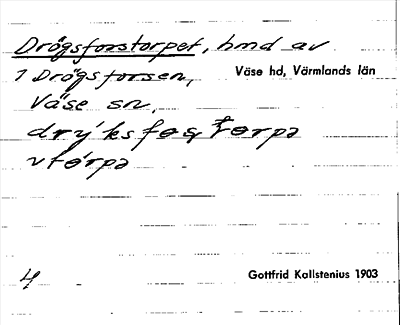 Drögsforstorpet, hmd av
1 Drögsforsen,
Väse hd, Värmlands län
Väse sn.
v tórpə
4
Gottfrid Kallstenius 1903